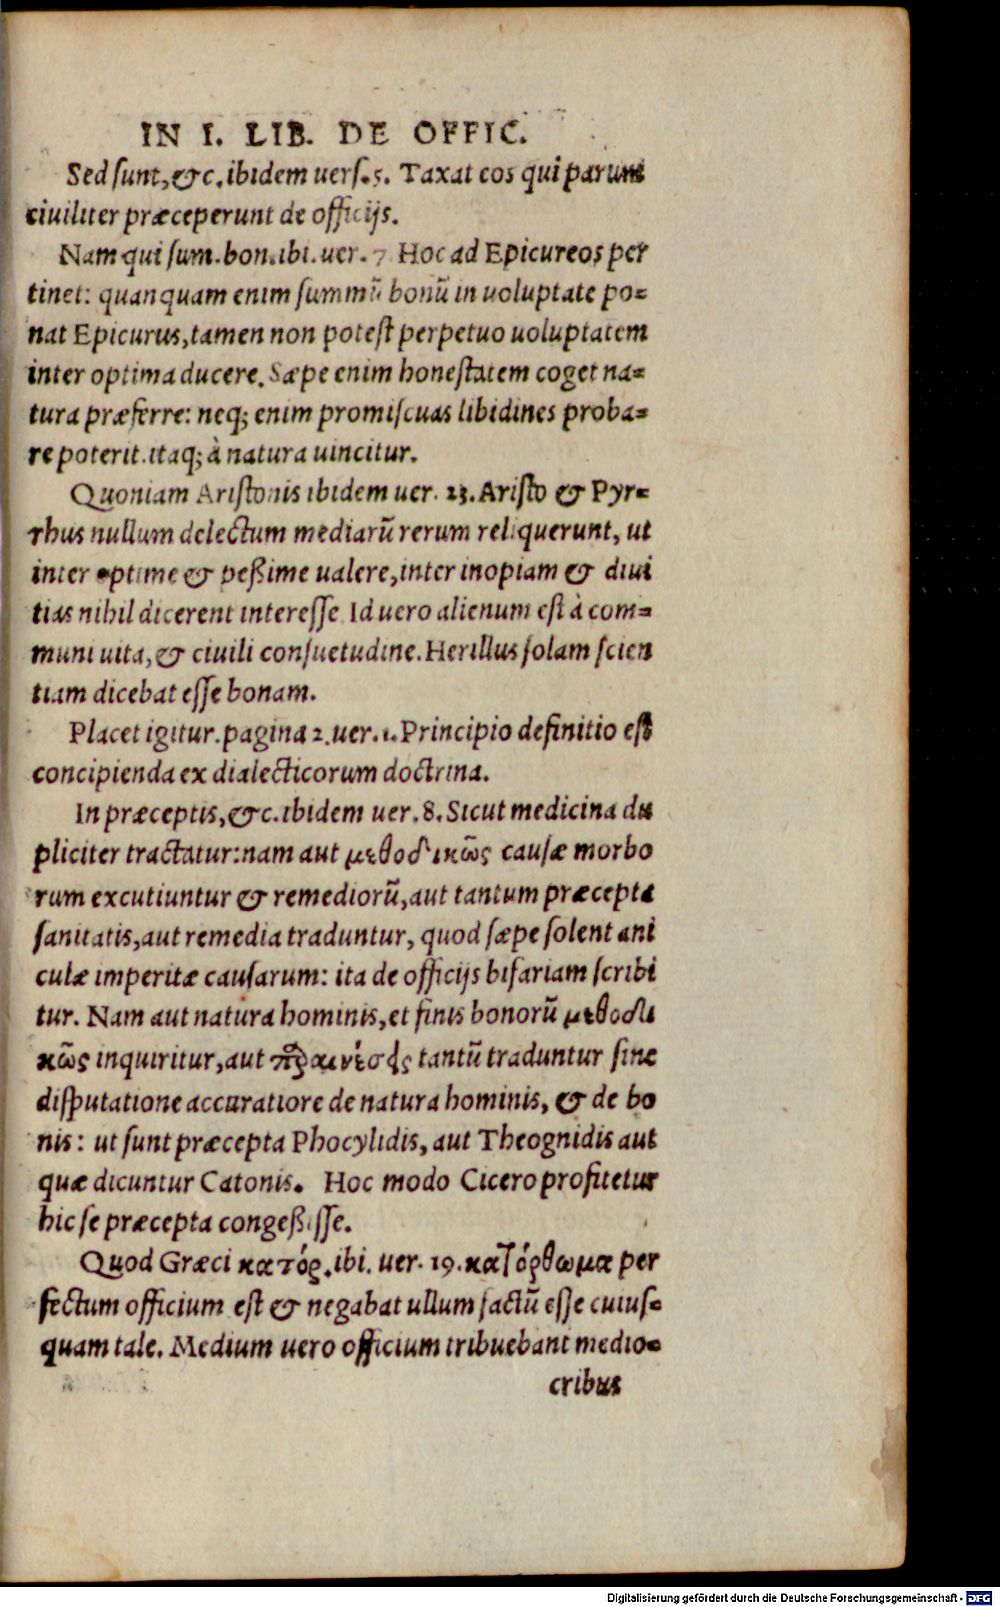 IN I. LIB. DE OFFIC.
Sed sunt, &c. ibidem uers. 5. Taxat eos qui parum
ciuiliter præceperunt de officijs.
Nam qui sum. bon. ibi. uer. 7 Hoc ad Epicureos per
tinet: quanquam enim summū bonū in uoluptate po=
nat Epicurus, tamen non potest perpetuo uoluptatem
inter optima ducere. Sæpe enim honestatem coget na=
tura præferre: neq; enim promiscuas libidines proba=
re poterit. itaq; à natura uincitur.
Quoniam Aristonis ibidem uer. 23. Aristo & Pyr=
rhus nullum delectum mediarū rerum reliquerunt, ut
inter optime & peßime ualere, inter inopiam & diui
tias nihil dicerent interesse Id uero alienum est à com=
muni uita, & ciuili consuetudine. Herillus solam scien
tiam dicebat esse bonam.
Placet igitur. pagina 2. uer. 1. Principio definitio est
concipienda ex dialecticorum doctrina.
In præceptis, &c. ibidem uer. 8. Sicut medicina du
pliciter tractatur: nam aut μεθοδικῶς causæ morbo
rum excutiuntur & remediorū, aut tantum præcepta
sanitatis, aut remedia traduntur, quod sæpe solent ani
culæ imperitæ causarum: ita de officijs bifariam scribi
tur. Nam aut natura hominis, et finis bonorū μεθοδι
κῶς inquiritur, aut παραινέσεις tantū traduntur sine
disputatione accuratiore de natura hominis, & de bo
nis: ut sunt præcepta Phocylidis, aut Theognidis aut
quæ dicuntur Catonis. Hoc modo Cicero profitetur
hic se præcepta congeßisse.
Quod Græci κατόρ. ibi. uer. 19. κατόρθωμα per
fectum officium est & negabat ullum factū esse cuius=
quam tale. Medium uero officium tribuebant medio=
cribus
Digitalisierung gefördert durch die Deutsche Forschungsgemeinschaft - DFG